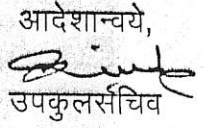 आदेशान्वये,
उपकुलसचिव